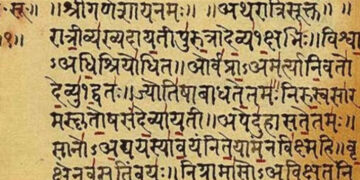 ॥श्रीगणेशायनमः॥ ॥अथरात्रिसूक्त॥
रात्रीव्यख्यदायतीपुरुत्रादेव्य१क्षभिः॥विश्वा
ऽअधिश्रियोधित॥ओर्वप्राऽअमर्त्यानिवतो
देव्यु१द्वतः॥ज्योतिषाबाधतेतमः॥निरुस्वसार
मस्कृतोषसंदेव्यायती॥अपेदुहासतेतमः॥
सानोऽअद्ययस्यावयंनितेयामन्नविक्ष्महि॥वृ
क्षेनवसतिंवयः॥नियामासोऽअविक्षतनि